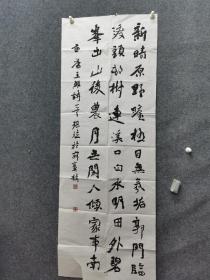 新晴原野曠極目無氛垢郭門臨
渡頭邨樹連溪口白水明田外碧
峯出山後農月無閑人傾家事南
畝唐王維詩一首